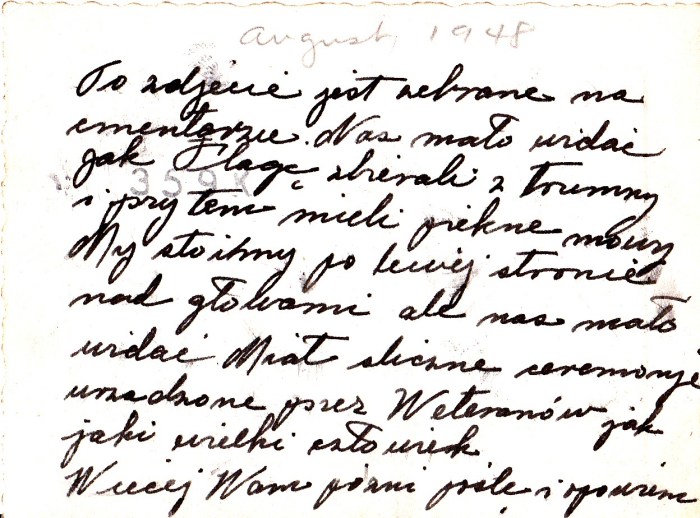 August, 1948
To zdjęcie jest zebrane na
cmentarzu. Nas mało widać
jak Flagę zbierali z trumny
359
i przytem mieli piękne mowy
My stoimy po lewéj stronie
nad głowami ale nas mało
widać Miał śliczne ceremonje
urzadzone przez Weteranów jak
jaki wielki człowiek
Więcej Wam pózni pośle i opowiem